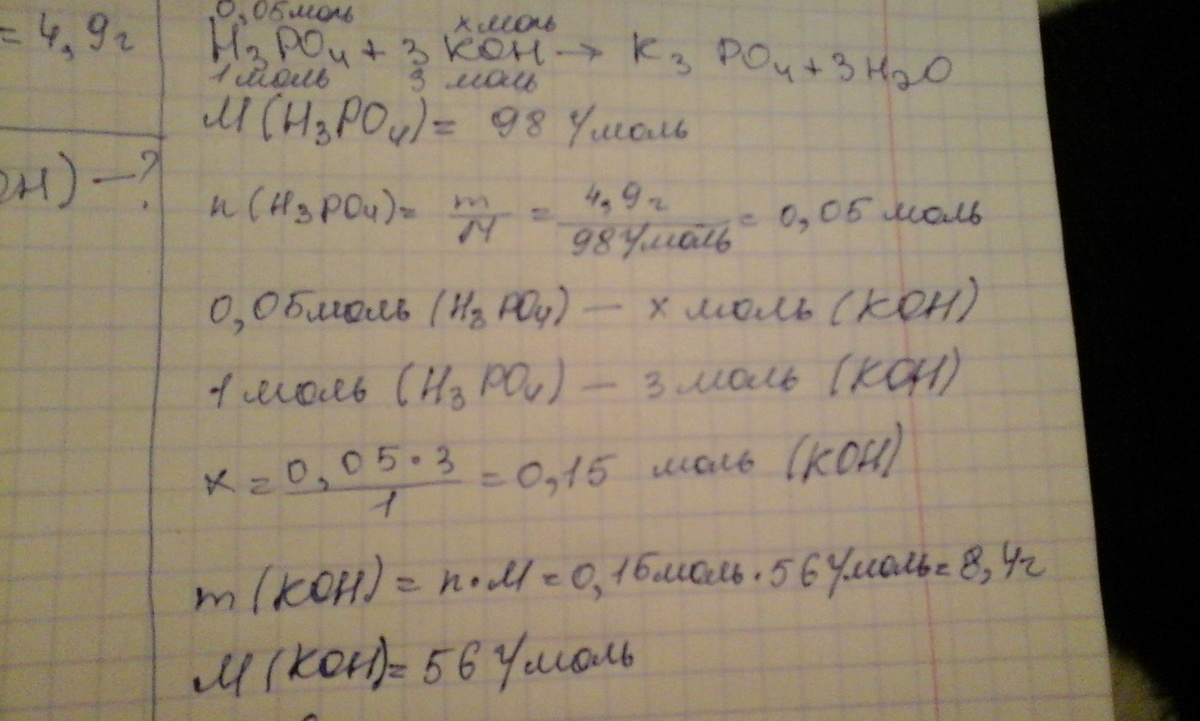 = 4,9г
0,05моль x моль
H₃PO₄ + 3 KOH → K₃ PO₄ + 3H₂O
1моль 3 моль
M (H₃PO₄) = 98 г/моль
OH) – ?
n (H₃PO₄) = m/M = 4,9г/98г/моль = 0,05 моль
0,05моль (H₃PO₄) – x моль (KOH)
1моль (H₃PO₄) – 3 моль (KOH)
x = 0,05·3/1 = 0,15 моль (KOH)
m (KOH) = n·M = 0,15моль·56г/моль = 8,4г
M (KOH) = 56 г/моль